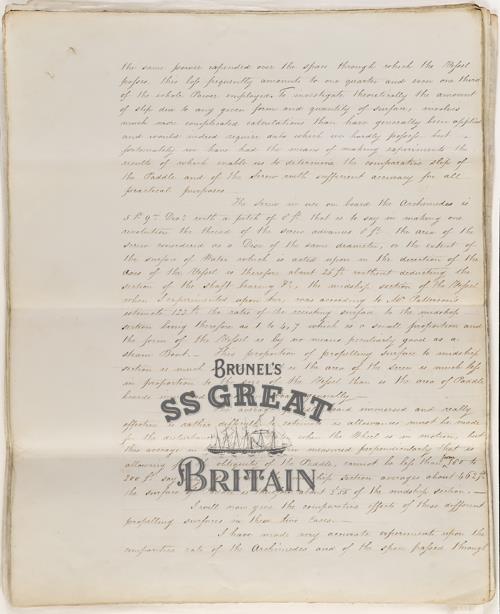 the same power expended over the space through which the Vessel
passes. this loss frequently amounts to one quarter and even one third
of the whole Power employed. To investigate theoretically the amount
of slip due to any given form and quantity of surface, involves
much more complicated calculations than have generally been applied
and would indeed require data which we hardly possess but
fortunately we have had the means of making experiments the
results of which enable us to determine the comparative slip of
the Paddle and of the Screw with sufficient accuracy for all
practical purposes
The Screw in use on board the Archimedes is
5 ft 9 in Diar with a pitch of 8 ft. that is to say in making one
revolution the thread of the screw advances 8 ft. the area of the
screw considered as a Disc of the same diameter, or the extent of
the surface of Water which is acted upon in the direction of the
axis of the Vessel is therefore about 26 ft without deducting the
section of the shaft bearing &c, the midship section of the Vessel
when I experimented upon her, was according to Mr Patterson's
estimate 122 ft the ratio of the resisting surface to the midship
section being therefore as 1 to 4,7 which is a small proportion and
the form of the Vessel is by no means peculiarly good as a
steam Boat. This proportion of propelling surface to midship
section is much is the area of the screw is much less
in proportion to the of the Vessel than is the area of Paddle
boards in
average board immersed and really
effective is rather difficult allowances must be made
for the disturbed when the Wheel is in motion, but
this average measured proportionately that is
allowing obliquity of the Paddle, cannot be less than to
200 ft say midship section averages about 462 ft
the surface about of the midship section.
I will now give the comparative effects of these different
propelling surfaces in these two cases.
I have made very accurate experiments upon the
comparative rate of the Archimedes and of the space passed through
BRUNEL'S
SS GREAT
BRITAIN